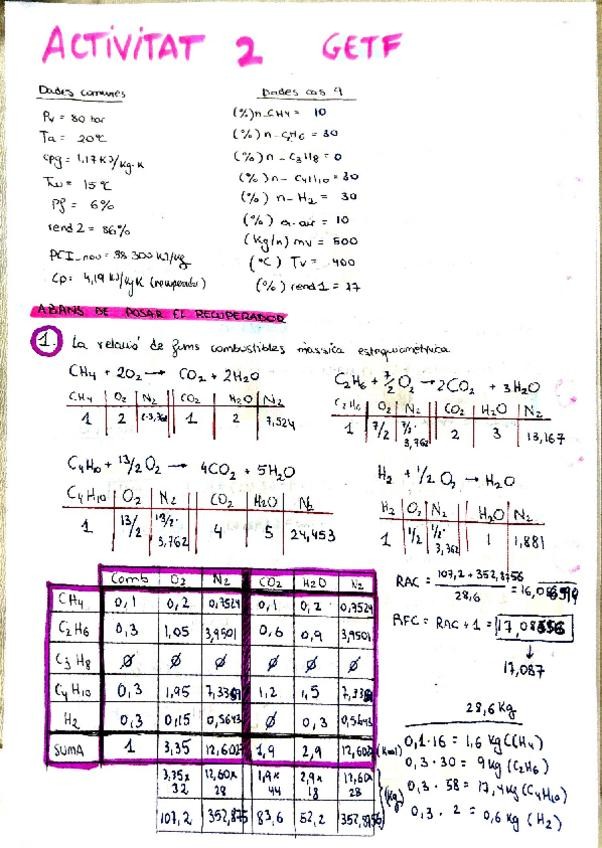 ACTIVITAT 2 GETF
Dades comunes
Pv = 80 bar
Ta = 20ºC
cpg = 1,17 KJ/Kg·K
Tw = 15ºC
Pf = 6%
rend 2 = 86%
Cp = 4,19 KJ/KgK (recuperador)
Dades cas 9
(%) n-CH4 = 10
(%) n-C2H6 = 30
(%) n-C3H8 = 0
(%) n-C4H10 = 30
(%) n-H2 = 30
(%) ex-air = 10
(Kg/h) mv = 500
(ºC) Tv = 400
(%) rend 1 =
ABANS DE POSAR EL RECUPERADOR
1. La relació de fums combustibles màssica estequiomètrica
CH4 + 2O2 → CO2 + 2H2O
CH4 O2 N2 CO2 H2O N2
1 2 2·3,762 1 2 7,524
C2H6 + 7/2 O2 → 2CO2 + 3H2O
C2H6 O2 N2 CO2 H2O N2
1 7/2 7/2· 3,762 2 3 13,167
C4H10 + 13/2 O2 → 4CO2 + 5H2O
C4H10 O2 N2 CO2 H2O N2
1 13/2 13/2· 3,762 4 5 24,453
H2 + 1/2 O2 → H2O
H2 O2 N2 H2O N2
1 1/2 1/2· 3,762 1 1,881
Comb O2 N2 CO2 H2O N2
CH4 0,1 0,2 0,7524 0,1 0,2 0,7524
C2H6 0,3 1,05 3,9501 0,6 0,9 3,9501
C3H8 Ø Ø Ø Ø Ø Ø
C4H10 0,3 1,95 1,2 1,5
H2 0,3 0,15 0,5643 Ø 0,3 0,5643
SUMA 1 3,35 1,9 2,9 (Kmol)
32 28 44 18 28
107,2 352,875 83,6 52,2 352,8756 (Kg)
RAC = 107,2 + 352,8756 / 28,6 =
RFC = RAC + 1 =
17,087
28,6 Kg
0,1·16 = 1,6 Kg (CH4)
0,3·30 = 9 Kg (C2H6)
0,3·58 = 17,4 Kg (C4H10)
0,3·2 = 0,6 Kg (H2)